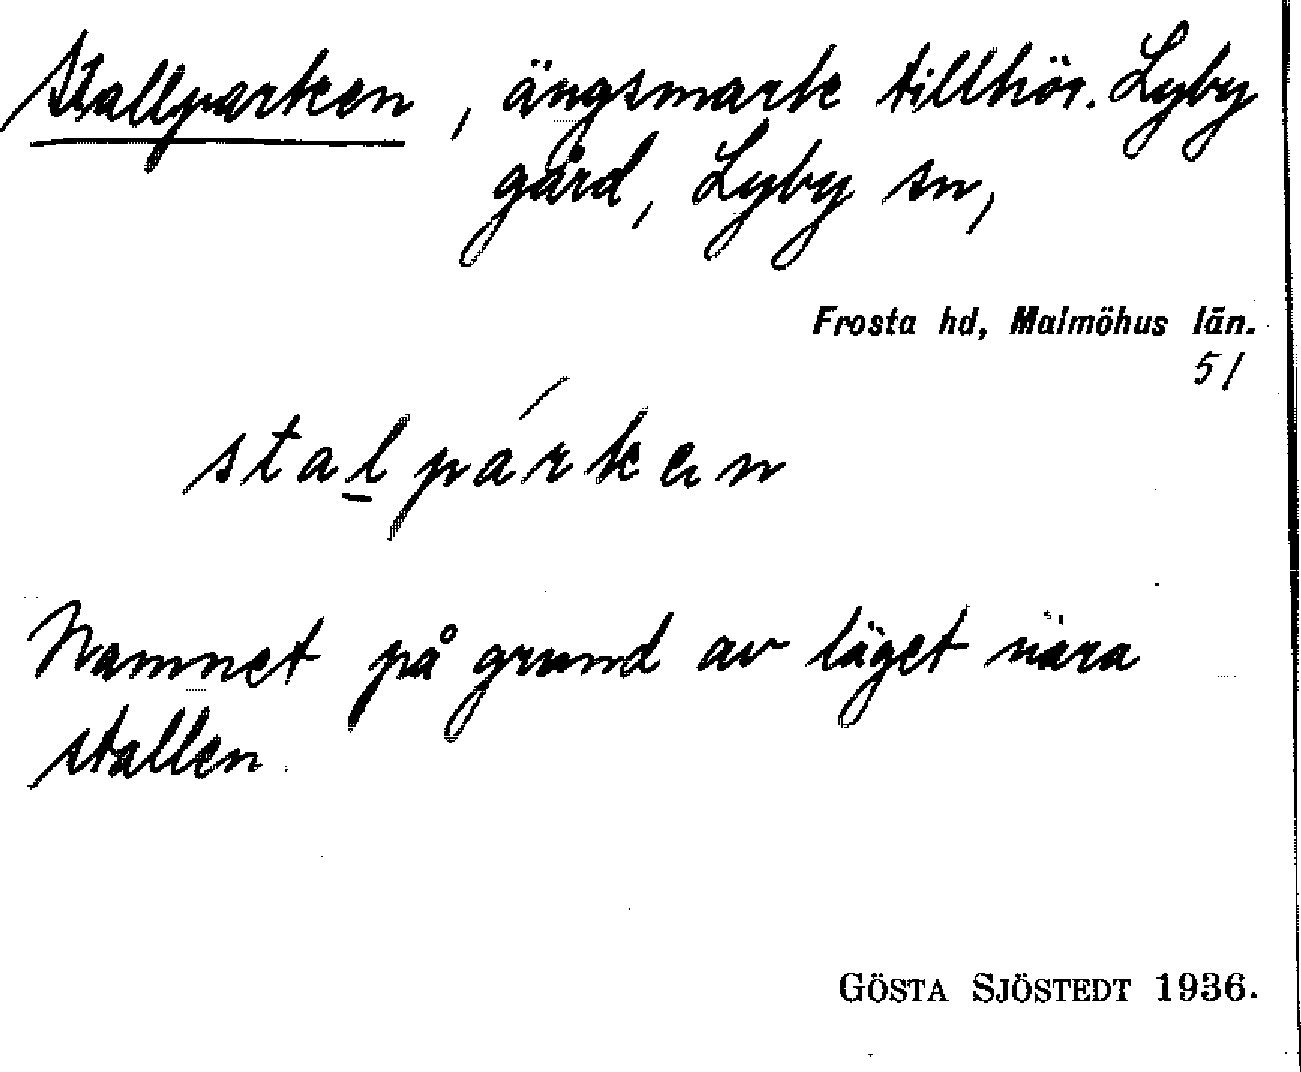 Stallparken, ängsmark tillhör. Lyby
gård, Lyby sn,
Frosta hd, Malmöhus län.
51
stalpárken
Namnet på grund av läget nära
stallen.
GÖSTA SJÖSTEDT 1936.